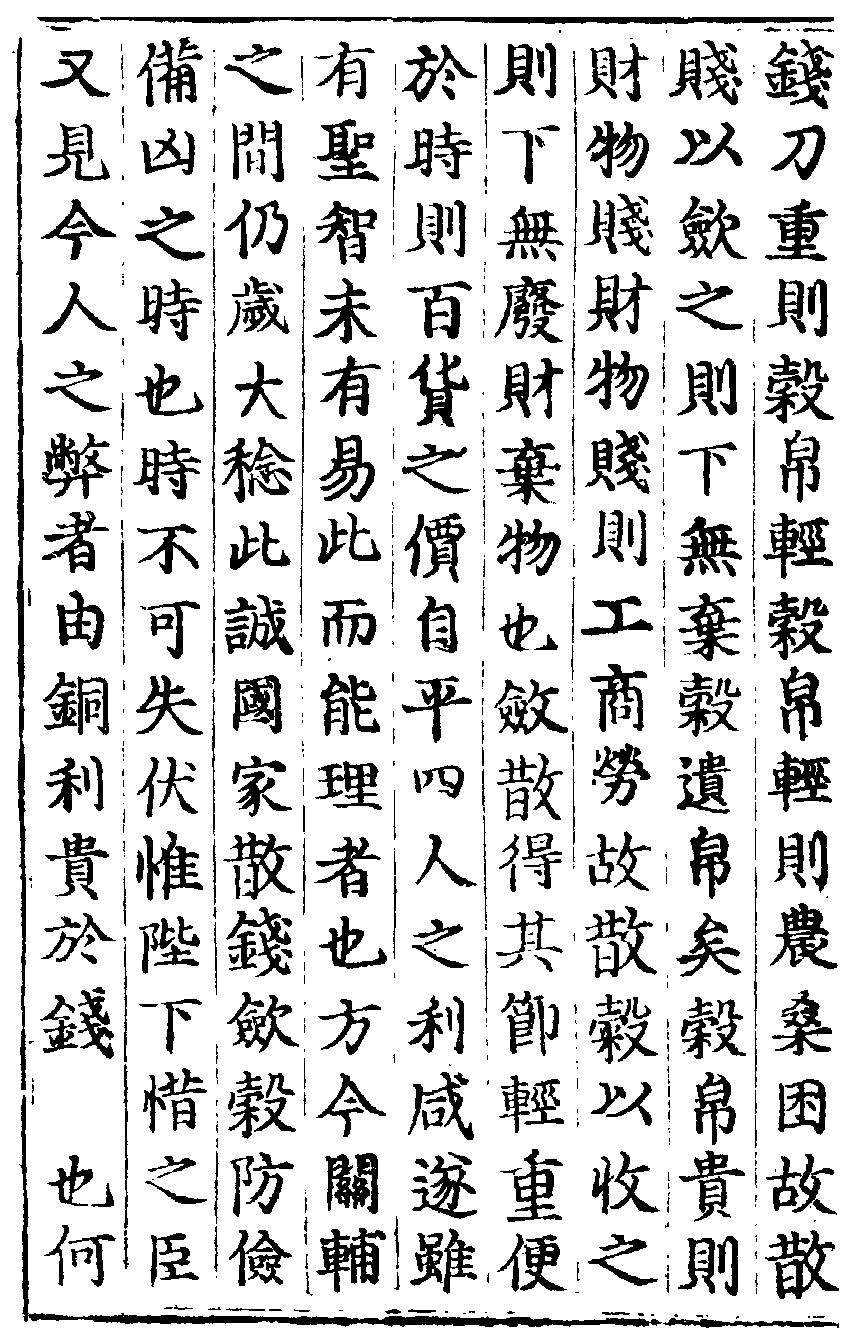 錢刀重則榖帛輕榖帛輕則農桑困故散
賤以歛之則下無棄榖遺帛矣榖帛貴則
財物賤財物賤則工商勞故散榖以收之
則下無廢財棄物也斂散得其節輕重便
於時則百貨之價自平四人之利咸遂雖
有聖智未有易此而能理者也方今關輔
之間仍歲大稔此誠國家散錢歛榖防儉
備凶之時也時不可失伏惟陛下惜之臣
又見今人之弊者由銅利貴於錢　也何